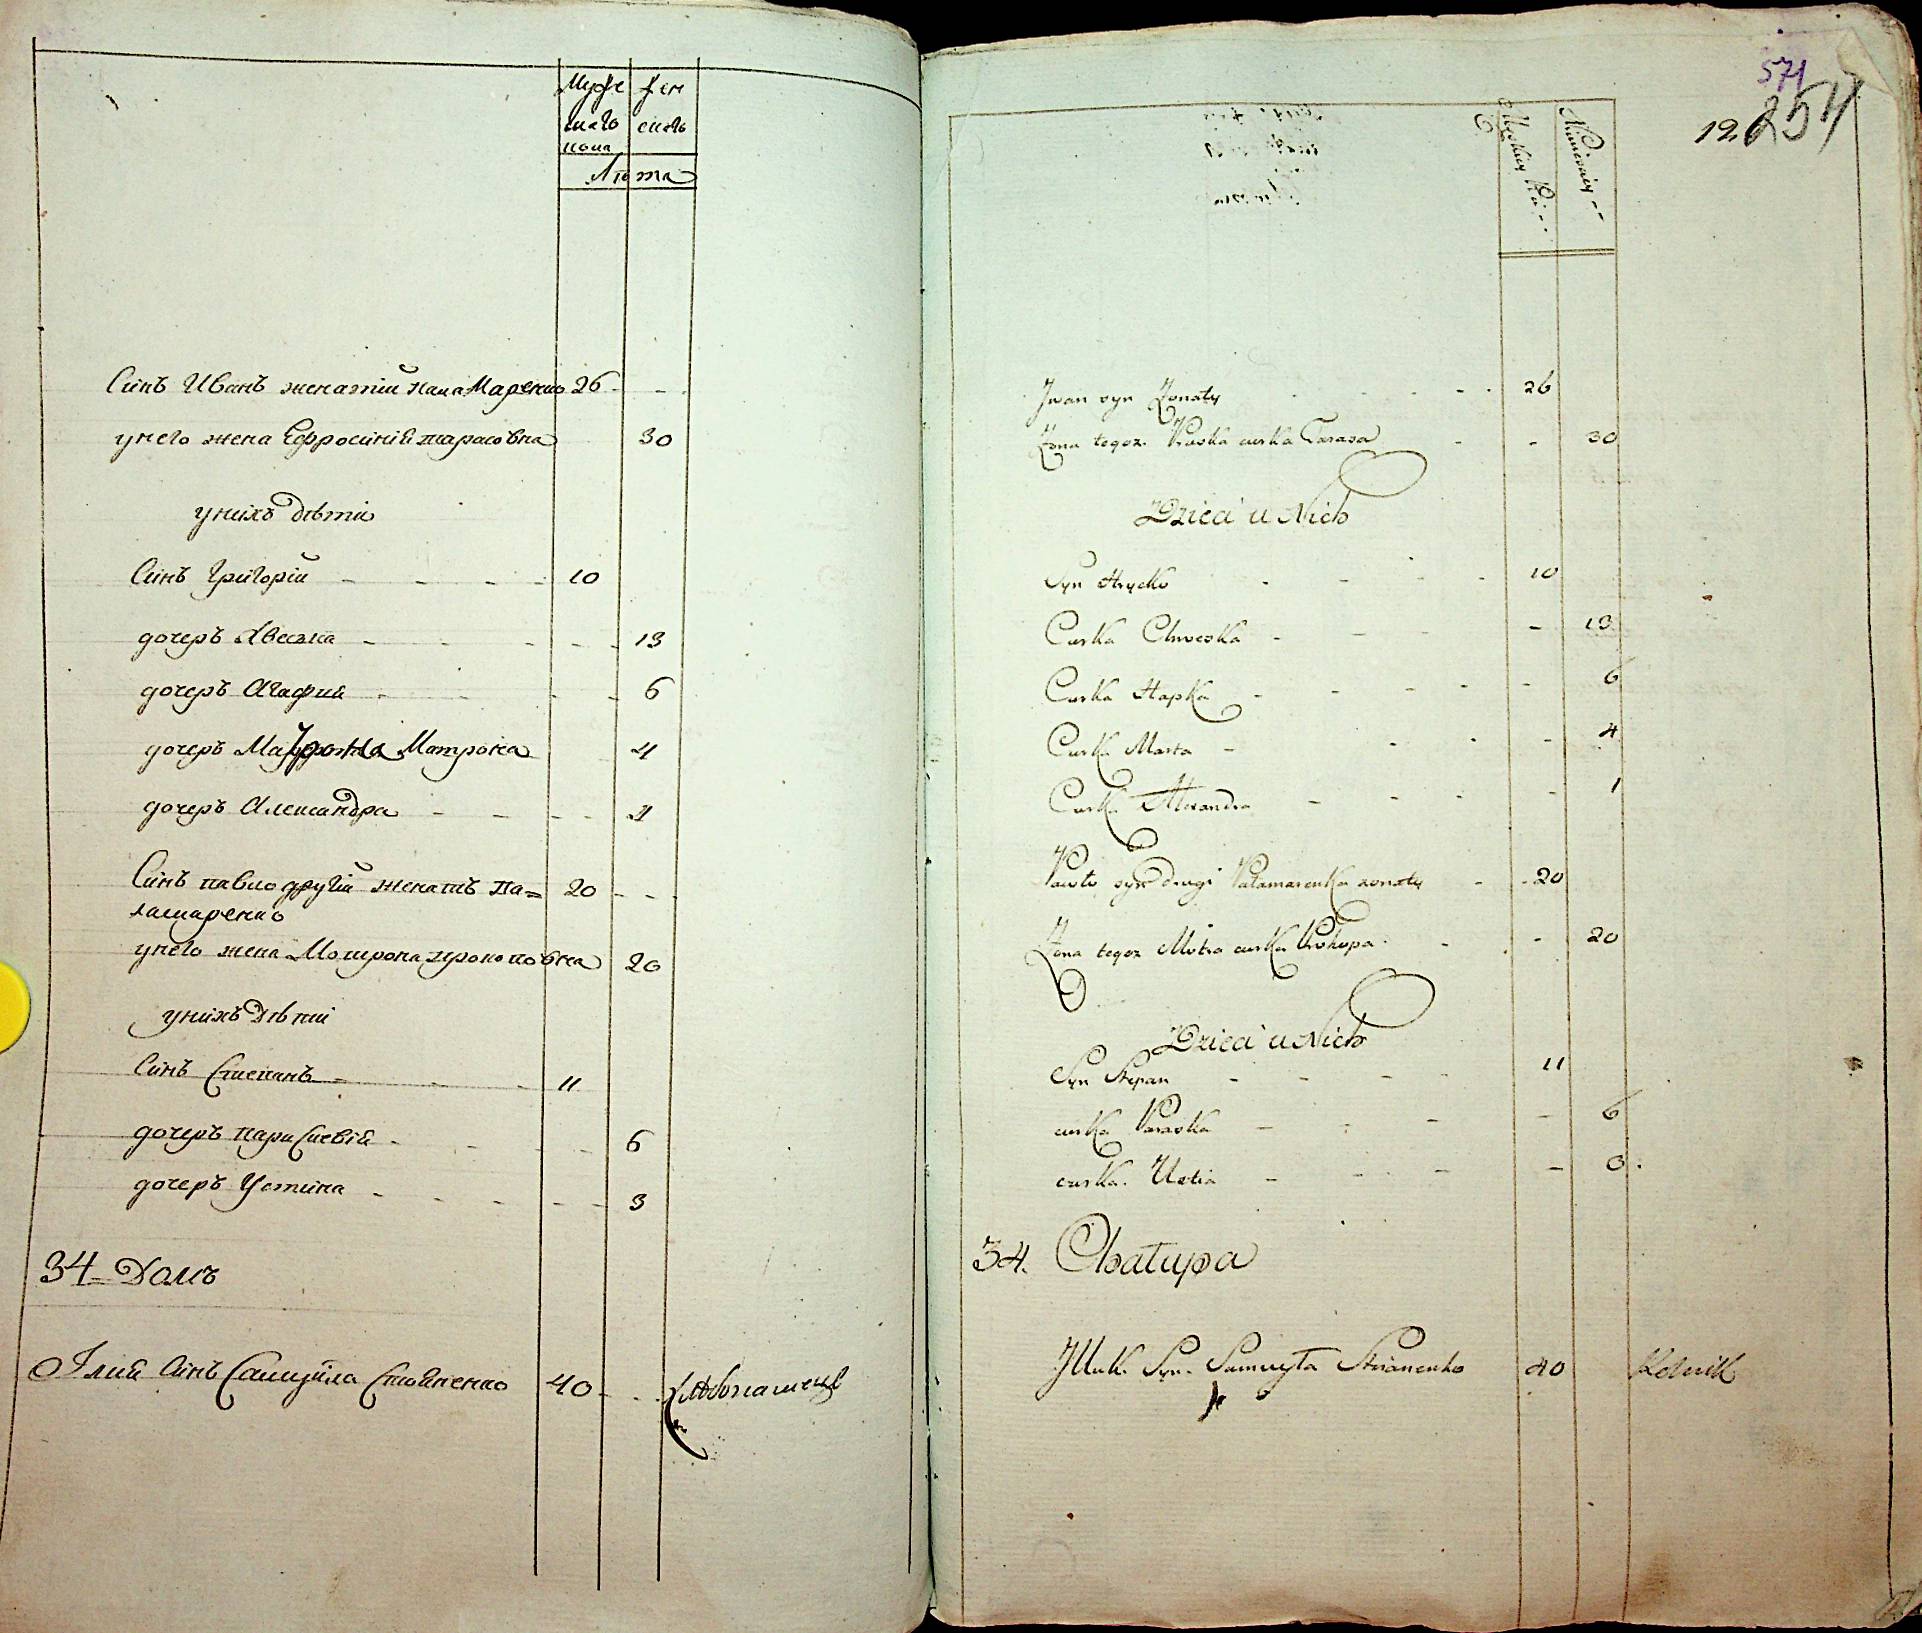 Муже
скаго
пола
жен
скаго
Лѣта
Синъ Иванъ женатий паламаренко 26
унего жена Ефросиния тарасовна 30
унихъ дѣти
Синъ Григорій 10
дочеръ Хвеска 13
дочеръ Агафия 6
дочеръ Матрона 4
дочеръ Александра 1
Синъ павло другій женатъ па=
ламаренко 20
унего жена Мотрона прокоповна 20
унихъ дѣти
Синъ Степанъ 11
дочеръ параскевія 6
дочеръ Устина 3
34 Домъ
Ілия Синъ Самуйла Стояненко 40
571
126
254
Męskiey
Niewieściey
Jwan syn Żonaty 26
Żona tegoz Pruska curka Tarasa 30
Dzieci u Nich
Syn Hrycko 10
Curka Chweska 13
Curka Hapka 6
Curka Marta 4
Curka Alexandra 1
Pawło syn drugi Pałamarenko zonaty 20
Żona tegoz Motra curka Prokopa 20
Dzieci u Nich
Syn Stepan 11
curka Paraska 6
curka Ustia 3
34. Chałupa
Syn Samuyła Stoianenko 40